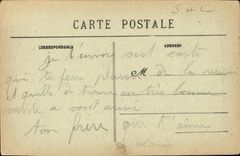 S et L
CARTE POSTALE
CORRESPONDANCE
ADRESSE
Je t'envoie sest carte
qui te fera plaisir M de la revoir
et quelle trouve en très bonne
santé a sont arivé
ton frère qui t'aime
Louis